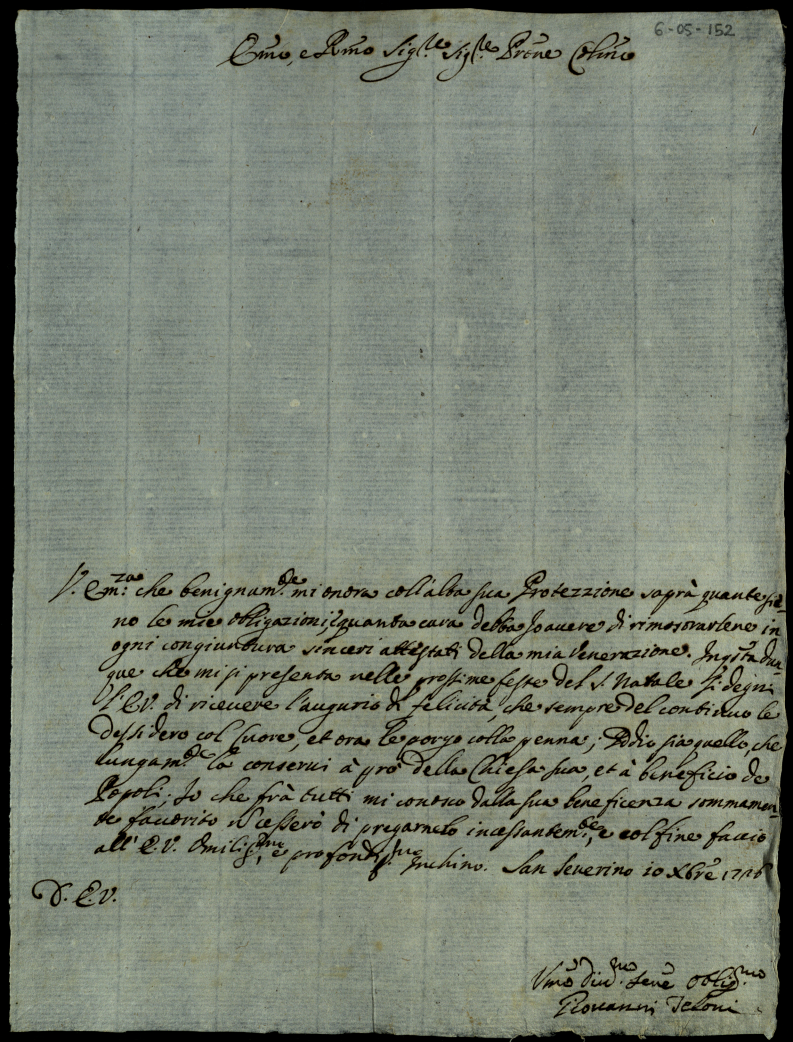 6-05-152
Emo, e Rmo Sig.re Sig.re Prōne Colmo
V. Em.za che benignam.te mi onora coll'alta sua Protezzione saprà quante sie-
no le mie obligazioni, e quanta cura debba Io avere di rimostrarlene in
ogni congiuntura sinceri attestati della mia Venerazione. In q.sta dun-
que che mi si presenta nelle prossime feste del S. Natale si degni
l'E.V. di ricevere l'augurio di felicità, che sempre del continuo le
desidero col Cuore, et ora le porgo colla penna; Iddio sia quello, che
lungam.te la conservi à prò della Chiesa sua, et à beneficio de
Popoli; Io che frà tutti mi conosco dalla sua beneficenza sommamen-
te favorito ñ cesserò di pregarnelo incessantem.te, e col fine faccio
all' E.V. Umiliss.mo, e profondiss.mo Inchino. San Severino 10 Xbre
D. E.V.
Umo Div.mo Serē Oblig.mo
Giovanni Teloni